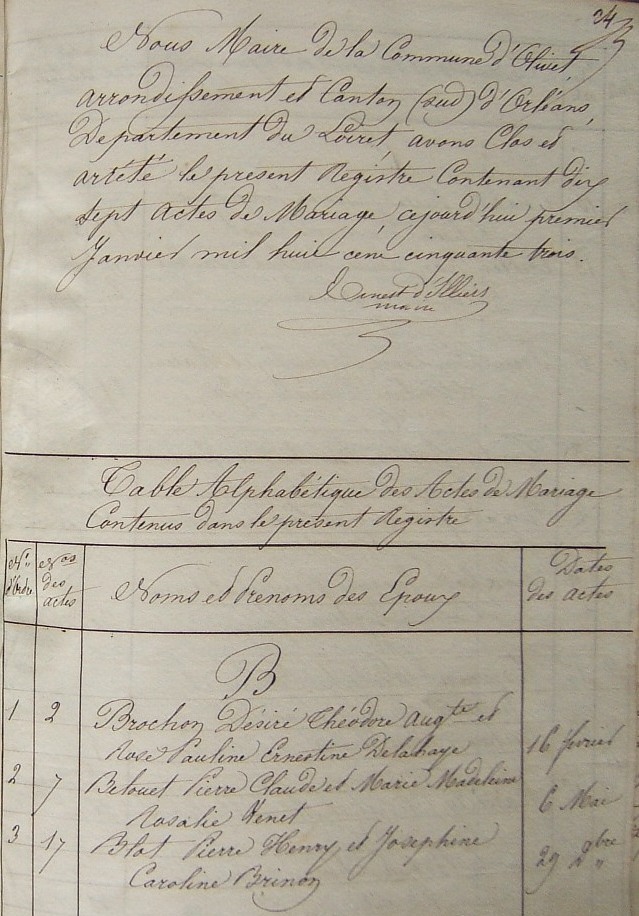 24
Nous Maire de la Commune d'Olivet,
arrondissement et Canton (sud) d'Orléans,
Département du Loiret, avons Clos et
arrêté le présent Registre Contenant dix
sept actes de Mariage, cejourd'hui premier
Janvier mil huit cent cinquante trois.
Ernest d'Illiers
maire
Table Alphabétique des Actes de Mariage
Contenus dans le présent Registre
Nos d'Ordre
Nos des actes
Noms et Prenoms des Epoux
Dates des actes
B
1 2 Brochon Désiré Théodore Augte et
Rose Pauline Ernestine Delahaye 16 février
2 7 Belouet Pierre Claude et Marie Madeleine
Rosalie Venet 6 Mai
3 17 Blot Pierre Henry et Josephine
Caroline Brinon 29 bre